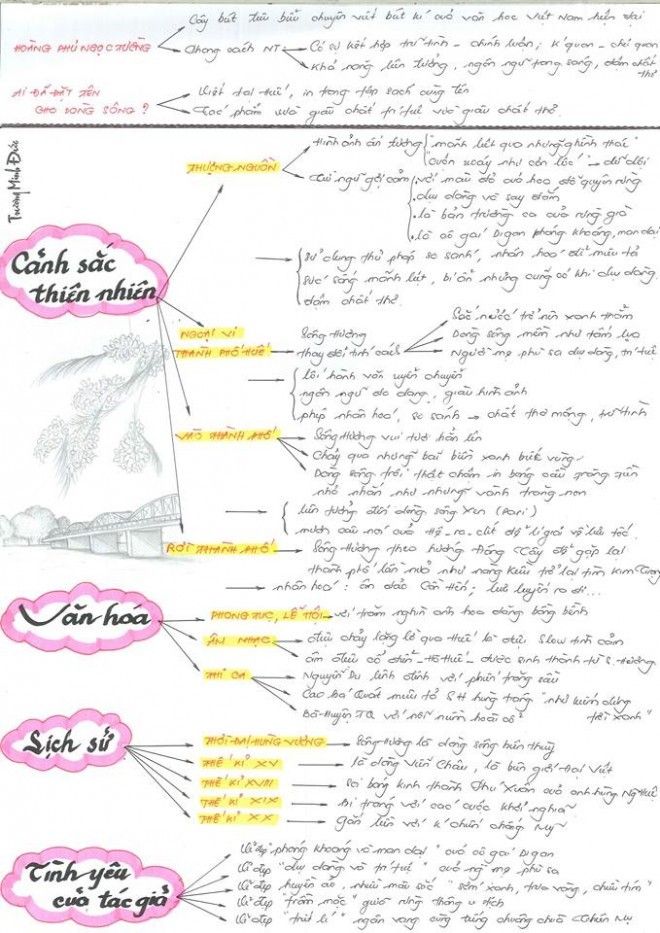 Cây bút tiêu biểu chuyên viết bút kí của văn học Việt Nam hiện đại
HOÀNG PHỦ NGỌC TƯỜNG
Phong cách NT
Có sự kết hợp trữ tình - chính luận; k quan - chủ quan
Khả năng liên tưởng, ngôn ngữ trong sáng, đậm chất thơ
AI ĐÃ ĐẶT TÊN CHO DÒNG SÔNG?
Viết tại Huế, in trong tập sách cùng tên
Tác phẩm vừa giàu chất trí tuệ vừa giàu chất thơ.
Trương Minh Đức
Cảnh sắc
thiên nhiên
THƯỢNG NGUỒN
Hình ảnh ấn tượng
"mãnh liệt qua những ghềnh thác"
"cuộn xoáy như cơn lốc" dữ dội
Từ ngữ gợi cảm
với màu đỏ của hoa đỗ quyên rừng
dịu dàng và say đắm
là bản trường ca của rừng già
là cô gái Digan phóng khoáng, man dại
Sử dụng thủ pháp so sánh, nhân hoá để miêu tả
sức sống mãnh liệt, bí ẩn nhưng cũng có khi dịu dàng.
đậm chất thơ.
NGOẠI VI
THÀNH PHỐ HUẾ
Sông Hương
thay đổi tính cách
Sắc nước trở nên xanh thẳm
Dòng sông mềm như tấm lụa
Người mẹ phù sa dịu dàng, trí tuệ
lối hành văn uyển chuyển
ngôn ngữ đa dạng, giàu hình ảnh
phép nhân hoá, so sánh → chất thơ mộng, trữ tình
VÀO THÀNH PHỐ
Sông Hương vui tươi hẳn lên
Chảy qua những bãi biền xanh biếc vùng
Dòng sông trôi thật chậm in bóng cầu trắng
nhỏ nhắn như những vành trăng non
liên tưởng đến dòng sông Xen (Pari)
mượn câu nói của Hê-ra-clit để lí giải vệ lưu tốc.
RỜI THÀNH PHỐ
Sông Hương theo hướng Đông Tây để gặp lại
thành phố lần nữa như nàng Kiều trở lại tìm Kim Trọng
nhân hoá: ôm đảo Cồn Hến; lưu luyến ra đi...
Văn hóa
PHONG TỤC, LỄ HỘI
với trăm nghìn ánh hoa đăng bồng bềnh
ÂM NHẠC
điệu chảy lặng lờ qua Huế là điệu Slow tình cảm
âm điệu cổ điển Huế được sinh thành từ S. Hương
THI CA
Nguyễn Du lênh đênh với phiến trăng sầu
Cao Bá Quát miêu tả SH hùng tráng "như kiếm dựng trời xanh"
Bà Huyện TQ với nỗi niềm hoài cổ
Lịch sử
THỜI ĐẠI HÙNG VƯƠNG
Sông Hương là dòng sông biên thuỳ
THẾ KỈ XV
là dòng Viễn Châu, là biên giới Đại Việt
THẾ KỈ XVIII
Soi bóng kinh thành Phú Xuân của anh hùng Ng Huệ
THẾ KỈ XIX
Bi tráng với các cuộc khởi nghĩa
THẾ KỈ XX
Gắn liền với k chiến chống Mỹ
Tình yêu
của tác giả
Vẻ đẹp "phóng khoáng và man dại" của cô gái Digan
Vẻ đẹp "dịu dàng và trí tuệ" của ng mẹ phù sa
Vẻ đẹp huyền ảo, nhiều màu sắc "sớm xanh, trưa vàng, chiều tím"
Vẻ đẹp "trầm mặc" giữa rừng thông u tịch
Vẻ đẹp "triết lí" ngân vang cùng tiếng chuông chùa Thiên Mụ